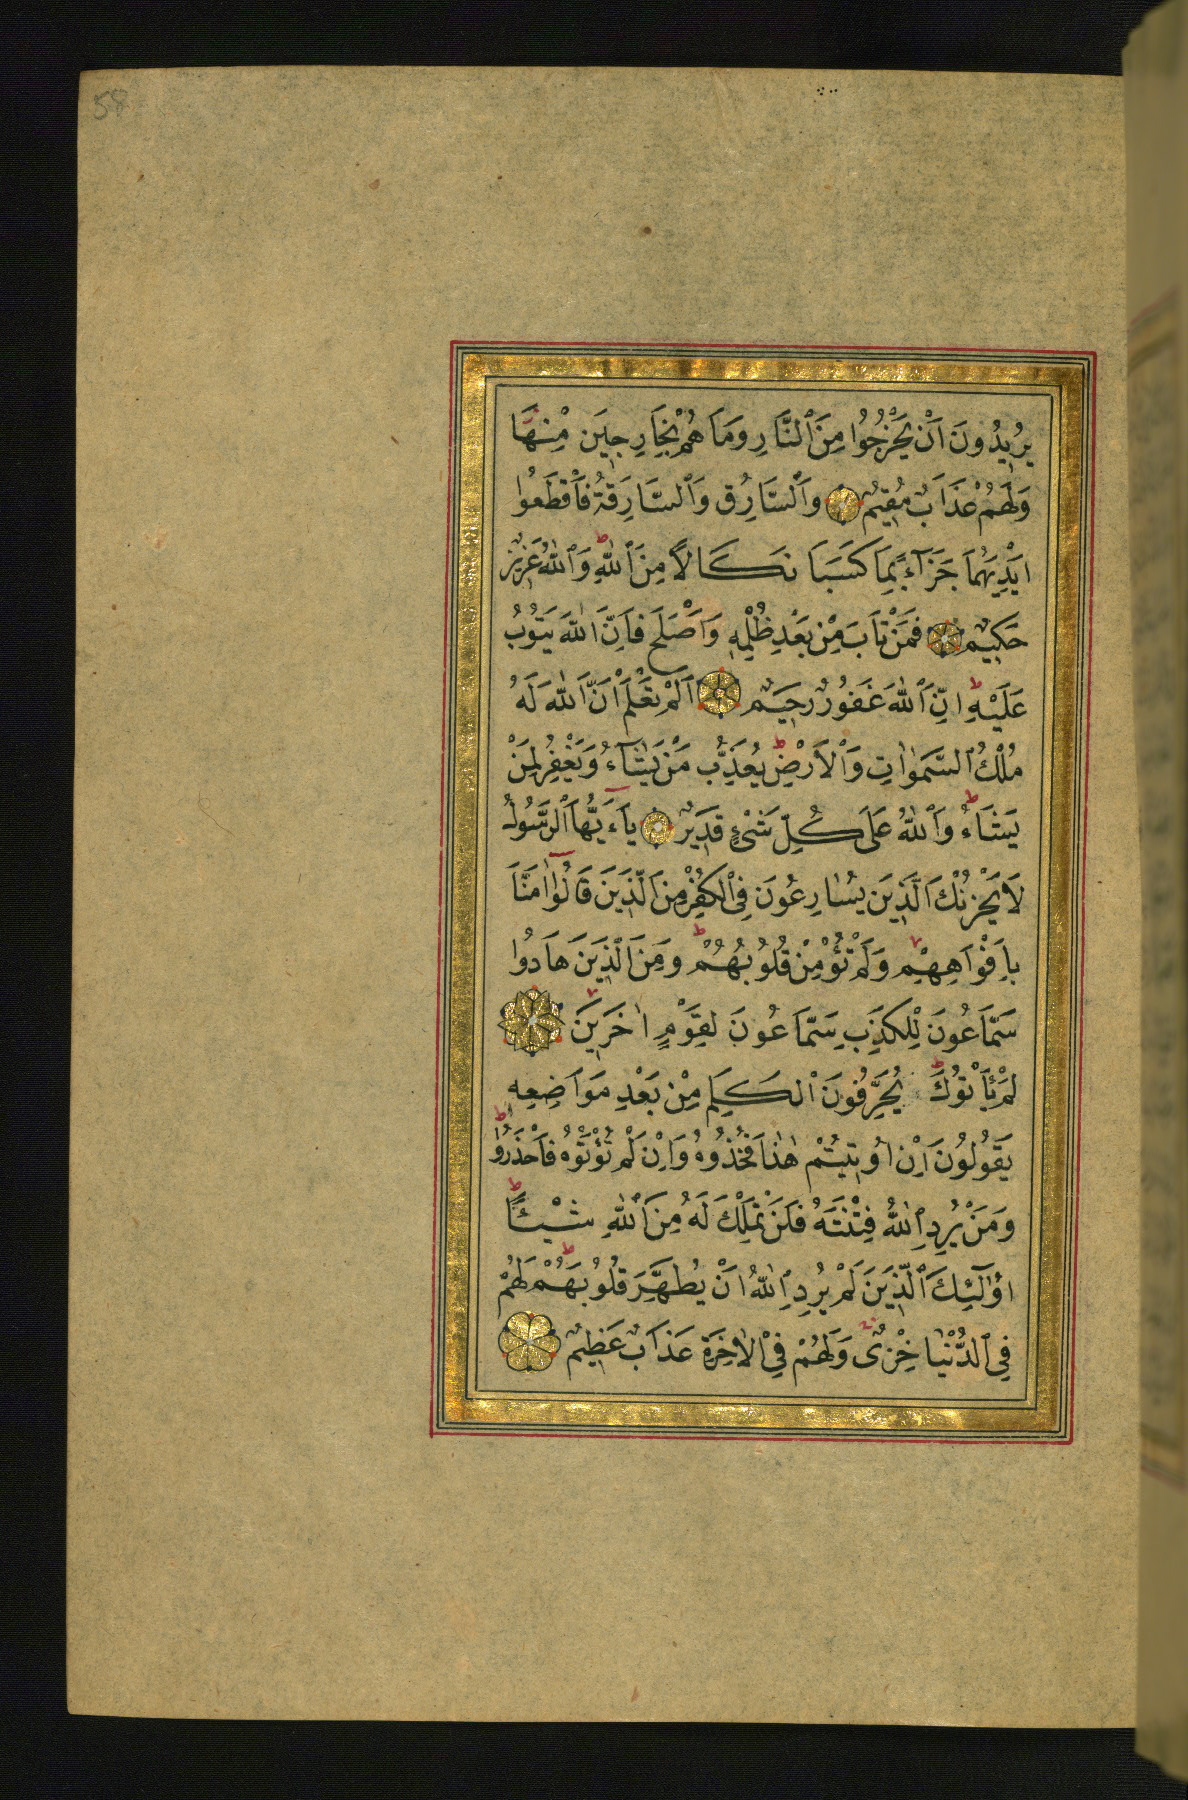 58
يُرِيدُونَ اَنْ يَخْرُجُوا مِنَ ٱلنَّارِ وَمَا هُمْ بِخَارِجِينَ مِنْهَا
وَلَهُمْ عَذَابٌ مُقِيمٌ وَٱلسَّارِقُ وَٱلسَّارِقَةُ فَاقْطَعُوا
اَيْدِيَهُمَا جَزَآءً بِمَا كَسَبَا نَكَالاً مِنَ ٱللّٰهِ ط وَٱللّٰهُ عَزِيزٌ
حَكِيمٌ فَمَنْ تَابَ مِنْ بَعْدِ ظُلْمِهِ وَاَصْلَحَ فَاِنَّ ٱللّٰهَ يَتُوبُ
عَلَيْهِ ط اِنَّ ٱللّٰهَ غَفُورٌ رَحِيمٌ اَلَمْ تَعْلَمْ اَنَّ ٱللّٰهَ لَهُ
مُلْكُ ٱلسَّمٰوَاتِ وَٱلْاَرْضِ ط يُعَذِّبُ مَنْ يَشَآءُ وَيَغْفِرُ لِمَنْ
يَشَآءُ ط وَٱللّٰهُ عَلَى كُلِّ شَىْءٍ قَدِيرٌ يَآءَيُّهَا ٱلرَّسُولُ
لَا يَحْزُنْكَ ٱلَّذِينَ يُسَارِعُونَ فِى ٱلْكُفْرِ مِنَ ٱلَّذِينَ قَالُوٓا اٰمَنَّا
بِاَفْوَاهِهِمْ وَلَمْ تُؤْمِنْ قُلُوبُهُمْ ط وَمِنَ ٱلَّذِينَ هَادُوا
سَمَّاعُونَ لِلْكَذِبِ سَمَّاعُونَ لِقَوْمٍ اٰخَرِينَ
لَمْ يَأْتُوكَ ط يُحَرِّفُونَ ٱلْكَلِمَ مِنْ بَعْدِ مَوَاضِعِهِ
يَقُولُونَ اِنْ اُوتِيتُمْ هٰذَا فَخُذُوهُ وَاِنْ لَمْ تُؤْتَوْهُ فَاحْذَرُوا ط
وَمَنْ يُرِدِ ٱللّٰهُ فِتْنَتَهُ فَلَنْ تَمْلِكَ لَهُ مِنَ ٱللّٰهِ شَيْئًا ط
اُولٰٓئِكَ ٱلَّذِينَ لَمْ يُرِدِ ٱللّٰهُ اَنْ يُطَهِّرَ قُلُوبَهُمْ ط لَهُمْ
فِى ٱلدُّنْيَا خِزْىٌ وَلَهُمْ فِى ٱلْاٰخِرَةِ عَذَابٌ عَظِيمٌ